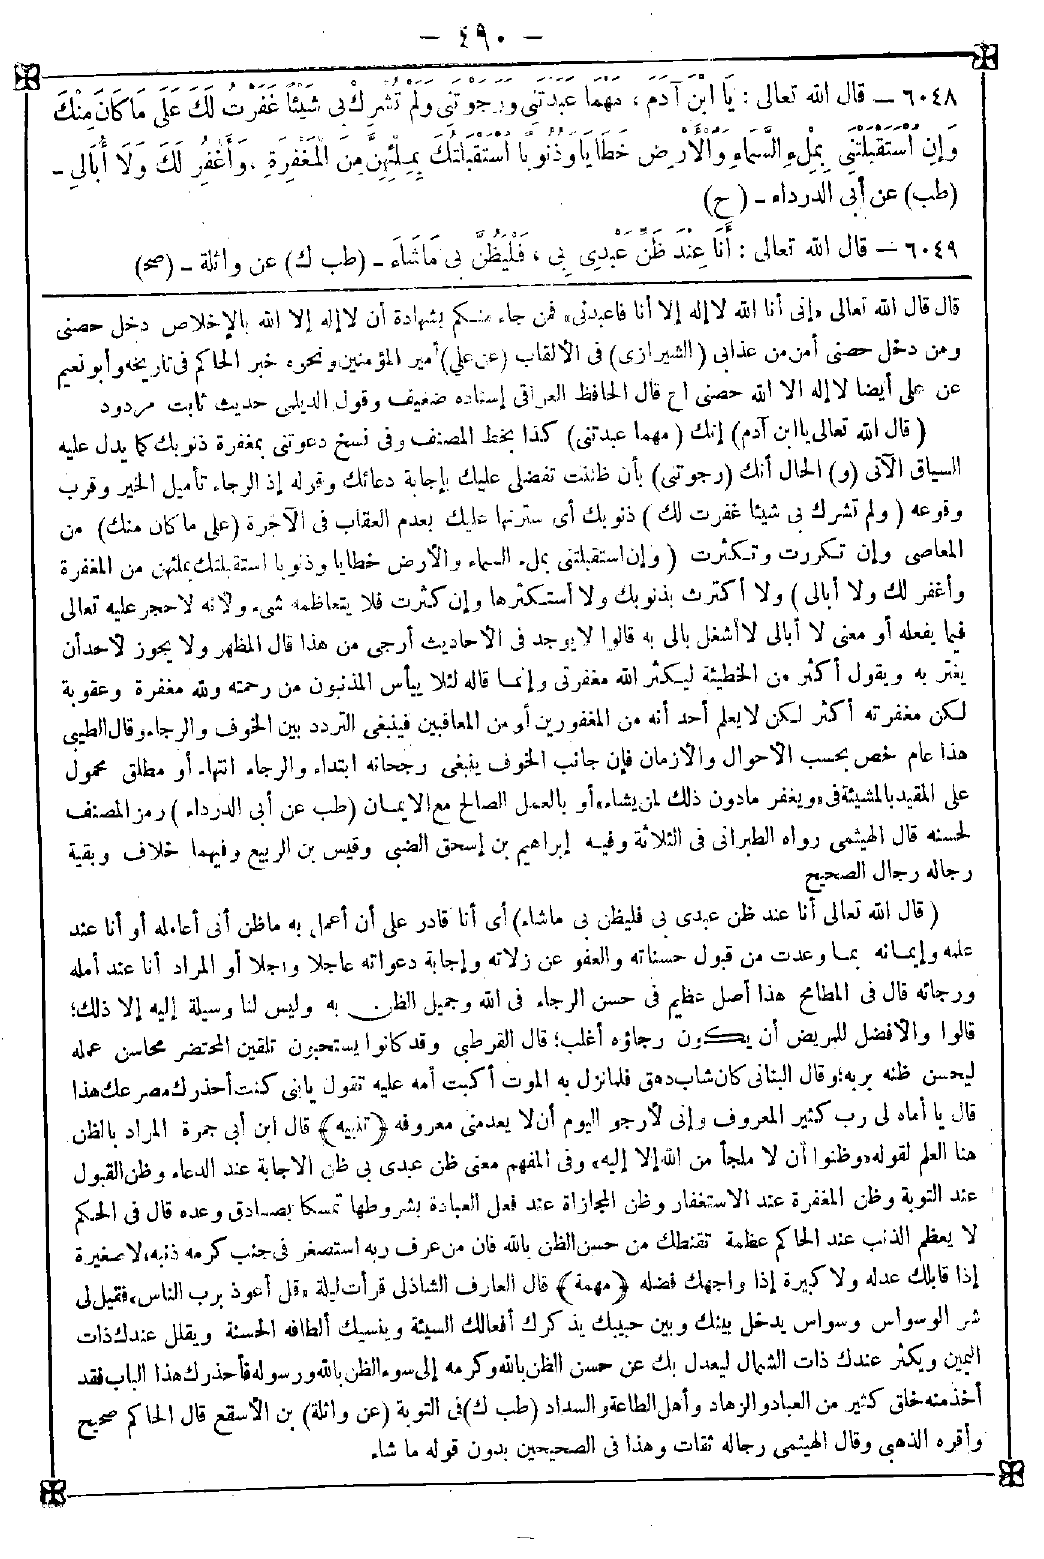 - ٤٩٠ -
٦٠٤٨ - قال الله تعالى : يَا ابْنَ آدَمَ ، مَهْمَا عَبَدْتَنِي وَرَجَوْتَنِي وَلَمْ تُشْرِكْ بِي شَيْئًا غَفَرْتُ لَكَ عَلَى مَا كَانَ مِنْكَ
وَإِنِ اسْتَقْبَلْتَنِي بِمِلْءِ السَّمَاءِ وَالْأَرْضِ خَطَايَا وَذُنُوبًا اسْتَقْبَلْتُكَ بِمِلْئِهِنَّ مِنَ الْمَغْفِرَةِ ، وَأَغْفِرُ لَكَ وَلَا أُبَالِي -
(طب) عن أبى الدرداء - ( ح )
٦٠٤٩ - قال الله تعالى : أَنَا عِنْدَ ظَنِّ عَبْدِي بِي ، فَلْيَظُنَّ بِي مَا شَاءَ - (طب ك) عن واثلة - (صح)
قال قال الله تعالى «إنى أنا الله لا إله إلا أنا فاعبدنى» فمن جاء منكم بشهادة أن لا إله إلا الله بالإخلاص دخل حصنى
ومن دخل حصنى أمن من عذابى (الشيرازى) فى الألقاب (عن على) أمير المؤمنين ونحوه خبر الحاكم فى تاريخه وأبو نعيم
عن على أيضا لا إله الا الله حصنى اخ قال الحافظ العراقى إسناده ضعيف وقول الديلمى حديث ثابت مردود
( قال الله تعالى يا ابن آدم) إنك (مهما عبدتنى) كذا بخط المصنف وفى نسخ دعوتنى بمغفرة ذنوبك كما يدل عليه
السياق الآتى (و) الحال أنك (رجوتنى) بأن ظننت تفضلى عليك بإجابة دعائك وقوله إذ الرجاء تأميل الخير وقرب
وقوعه ( ولم تشرك بى شيئا غفرت لك ) ذنوبك أى سترتها عليك بعدم العقاب فى الآخرة (على ما كان منك) من
المعاصى وإن تكررت وتكثرت ( وإن استقبلتنى بملء السماء والأرض خطايا وذنوبا استقبلتك بملئهن من المغفرة
وأغفر لك ولا أبالى ) ولا أكترث بذنوبك ولا أستكثرها وإن كثرت فلا يتعاظمه شىء ولأنه لا حجر عليه تعالى
فيما يفعله أو معنى لا أبالى لا أشغل بالى به قالوا لا يوجد فى الأحاديث أرجى من هذا قال المظهر ولا يجوز لأحد أن
يغتر به ويقول أكثر من الخطيئة ليكثر الله مغفرتى وإنما قاله لئلا ييأس المذنبون من رحمته ولله مغفرة وعقوبة
لكن مغفرته أكثر لكن لا يعلم أحد أنه من المغفورين أو من المعاقبين فينبغى التردد بين الخوف والرجاء وقال الطيبى
هذا عام خص بحسب الأحوال والأزمان فإن جانب الخوف ينبغى رجحانه ابتداء والرجاء انتهاء أو مطلق محمول
على المقيد بالمشيئة فى «ويغفر مادون ذلك لمن يشاء» أو بالعمل الصالح مع الايمان (طب عن أبى الدرداء ) رمز المصنف
لحسنه قال الهيثمى رواه الطبرانى فى الثلاثة وفيه إبراهيم بن إسحق الضبى وقيس بن الربيع وفيهما خلاف وبقية
رجاله رجال الصحيح
( قال الله تعالى أنا عند ظن عبدى بى فليظن بى ماشاء) أى أنا قادر على أن أعمل به ماظن أنى أعامله أو أنا عند
علمه وإيمانه بما وعدت من قبول حسناته والعفو عن زلاته وإجابة دعواته عاجلا وآجلا أو المراد أنا عند أمله
ورجائه قال فى المطامح هذا أصل عظيم فى حسن الرجاء فى الله وجميل الظن به وليس لنا وسيلة إليه إلا ذلك؛
قالوا والأفضل للمريض أن يكون رجاؤه أغلب؛ قال القرطبى وقد كانوا يستحبون تلقين المحتضر محاسن عمله
ليحسن ظنه بربه؛ وقال البنانى كان شاب دهق فلما نزل به الموت أكبت أمه عليه تقول يا بنى كنت أحذرك مصرعك هذا
قال يا أماه لى رب كثير المعروف وإنى لأرجو اليوم أن لا يعدمنى معروفه ﴿تنبيه﴾ قال ابن أبى جمرة المراد بالظن
هنا العلم لقوله «وظنوا أن لا ملجأ من الله إلا إليه» وفى المفهم معنى ظن عبدى بى ظن الاجابة عند الدعاء وظن القبول
عند التوبة وظن المغفرة عند الاستغفار وظن المجازاة عند فعل العبادة بشروطها تمسكا بصادق وعده قال فى الحكم
لا يعظم الذنب عند الحاكم عظمة تقنطك من حسن الظن بالله فان من عرف ربه استصغر فى جنب كرمه ذنبه، لا صغيرة
إذا قابلك عدله ولا كبيرة إذا واجهك فضله ﴿مهمة﴾ قال العارف الشاذلى قرأت ليلة «قل أعوذ برب الناس» فقيل لى
شر الوسواس وسواس يدخل بينك وبين حبيبك يذكرك أفعالك السيئة وينسيك ألطافه الحسنة ويقلل عندك ذات
اليمين ويكثر عندك ذات الشمال ليعدل بك عن حسن الظن بالله وكرمه إلى سوء الظن بالله ورسوله فأحذرك هذا الباب فقد
أخذ منه خلق كثير من العباد والزهاد وأهل الطاعة والسداد (طب ك) فى التوبة (عن واثلة) بن الأسقع قال الحاكم صحيح
وأقره الذهبى وقال الهيثمى رجاله ثقات وهذا فى الصحيحين بدون قوله ما شاء